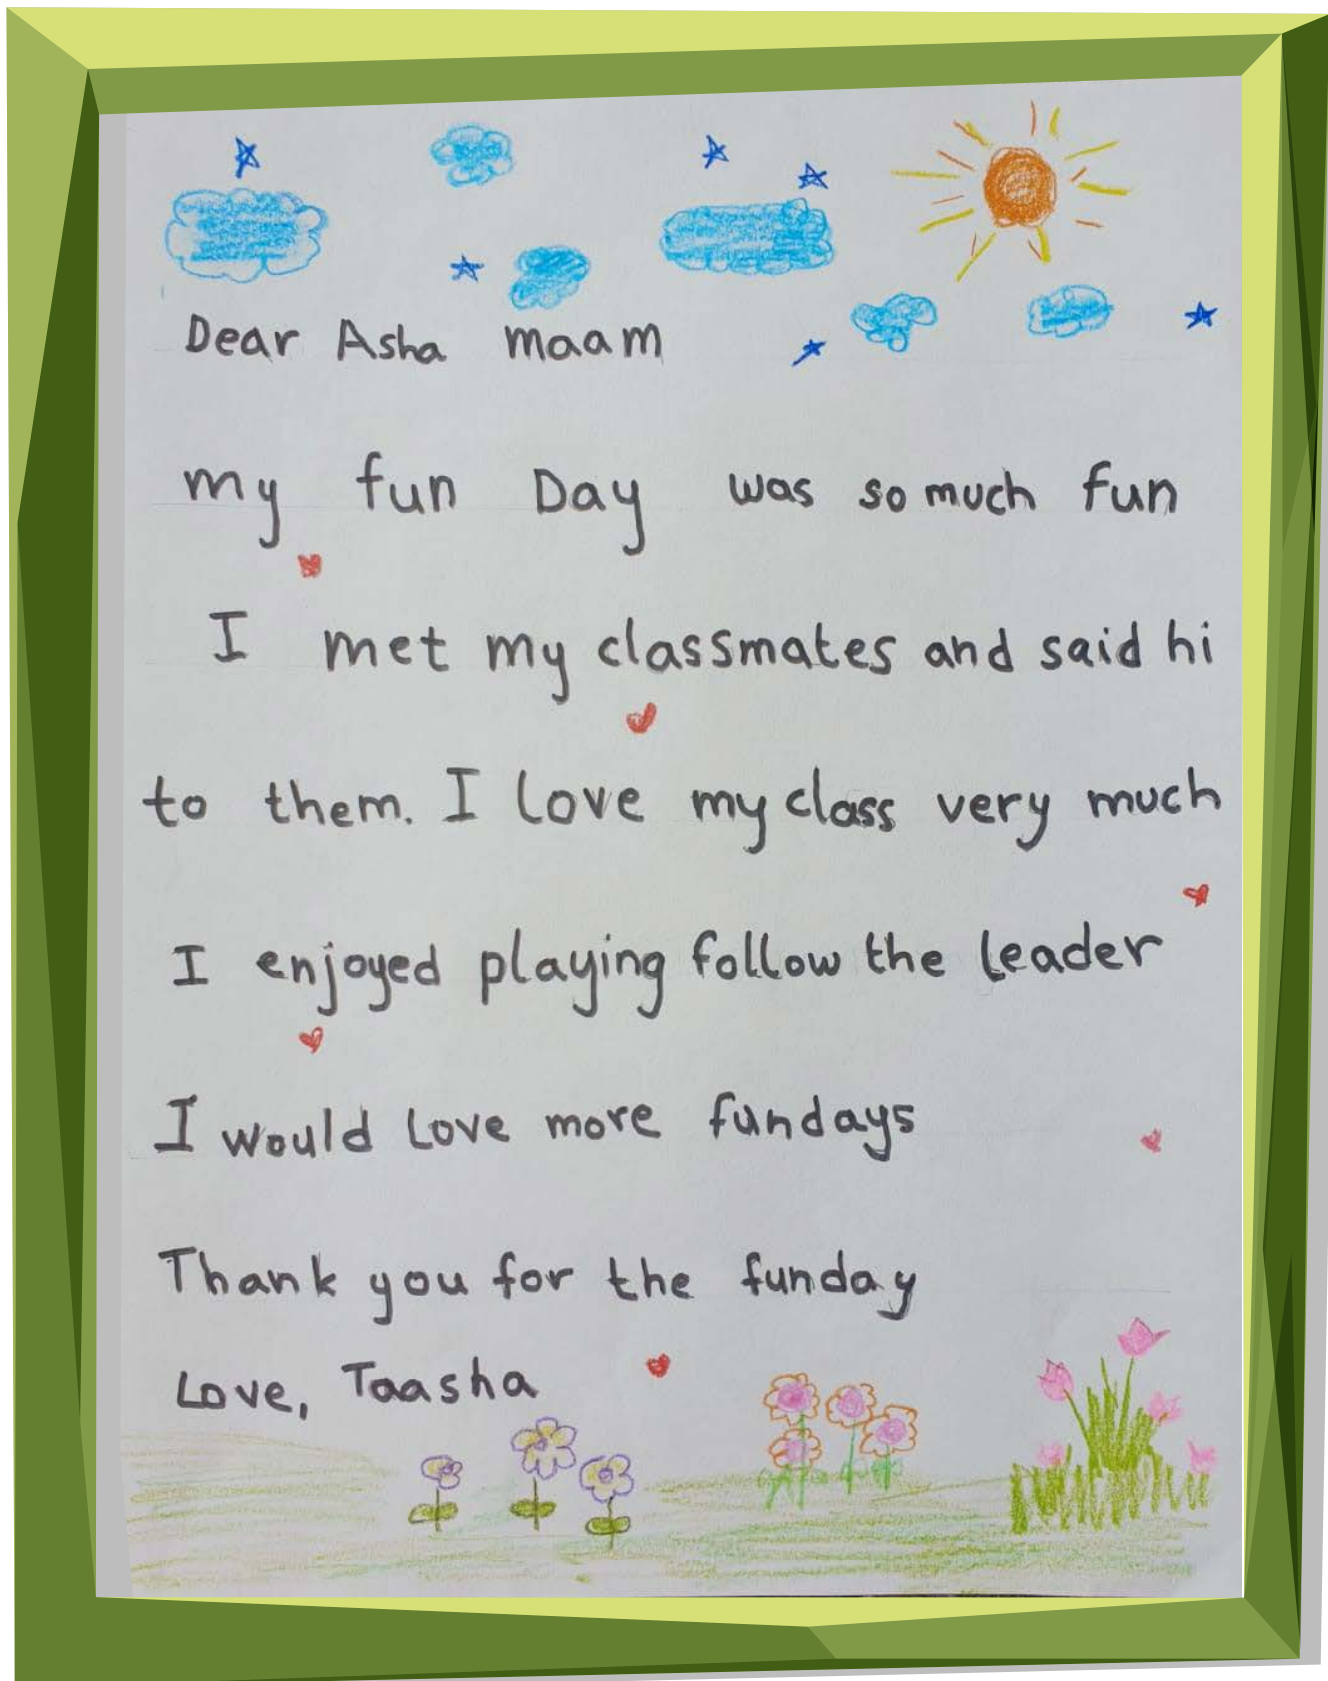 Dear Asha maam
my fun Day was so much fun
I met my classmates and said hi
to them. I love my class very much
I enjoyed playing follow the leader
I would love more fundays
Thank you for the funday
Love, Taasha